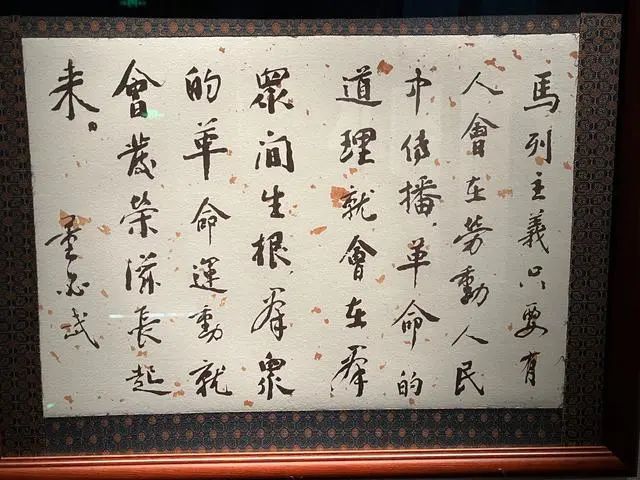 馬列主義只要有
人會在勞動人民
中傳播，革命的
道理就會在羣
衆间生根，羣衆
的革命運動就
會發榮滋長起
来。
董必武